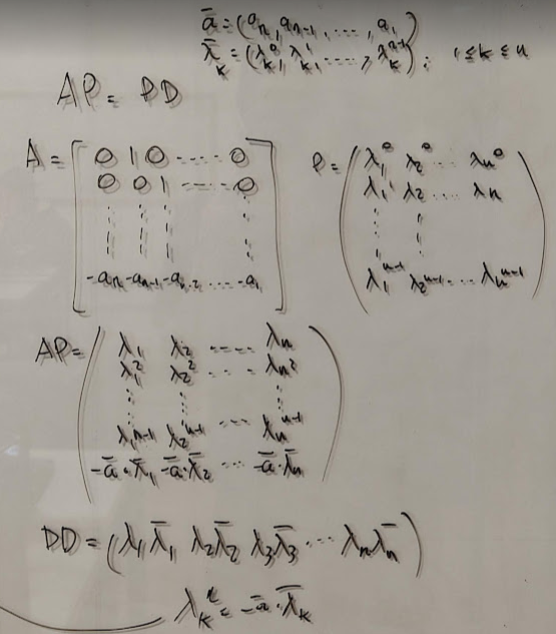 ā = (aₙ, aₙ₋₁, ..., a₁)
λ̄ₖ = (λₖ⁰, λₖ¹, ...., λₖⁿ⁻¹); 1 ≤ k ≤ n
AP = PD
A = [ 0 1 0 ..... 0
0 0 1 ..... 0
⋮ ⋮ ⋮ ⋮
-aₙ -aₙ₋₁ -aₙ₋₂ ..... -a₁ ]
P = ( λ₁⁰ λ₂⁰ ... λₙ⁰
λ₁¹ λ₂ .... λₙ
⋮ ⋮
λ₁ⁿ⁻¹ λ₂ⁿ⁻¹ ... λₙⁿ⁻¹ )
AP = ( λ₁ λ₂ ..... λₙ
λ₁² λ₂² .... λₙ²
⋮ ⋮ ⋮
λ₁ⁿ⁻¹ λ₂ⁿ⁻¹ ... λₙⁿ⁻¹
-ā·λ̄₁ -ā·λ̄₂ ... -ā·λ̄ₙ )
PD = (λ₁λ̄₁ λ₂λ̄₂ λ₃λ̄₃ ... λₙλ̄ₙ)
λₖⁿ = -ā·λ̄ₖ